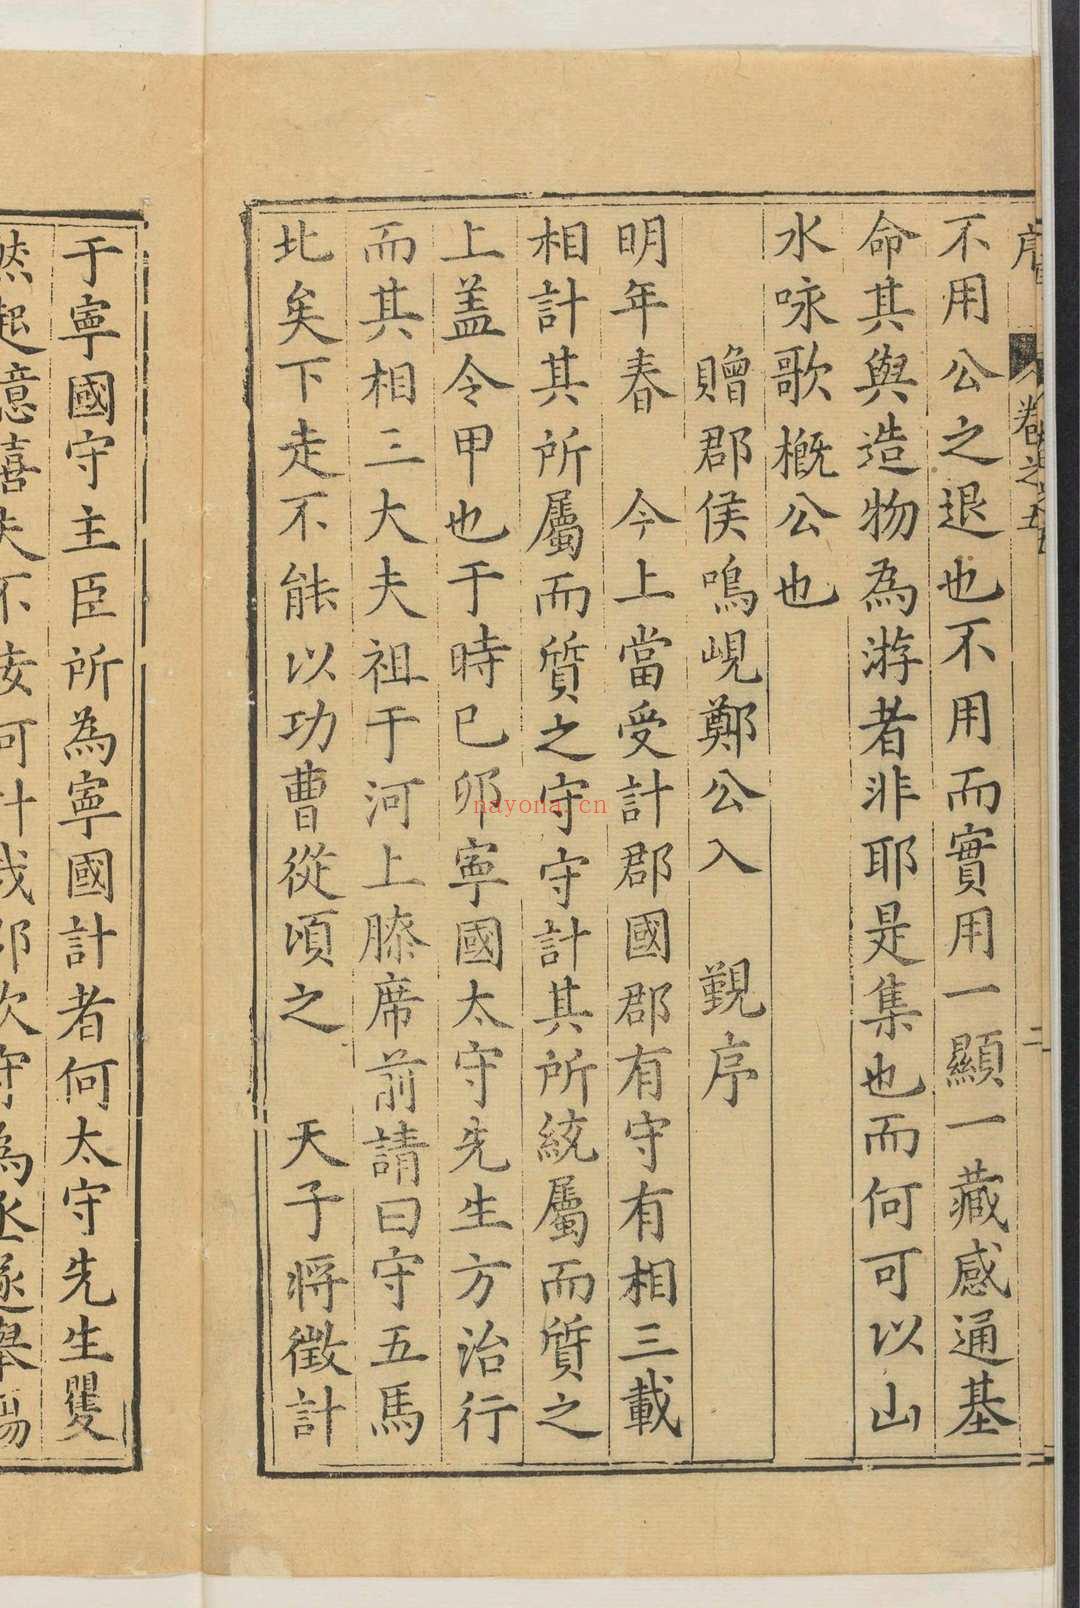 序 卷之五 二
不用公之退也不用而實用一顯一藏感通基
命其與造物爲游者非耶是集也而何可以山
水咏歌概公也
贈郡侯鳴峴鄭公入 覲序
明年春 今上當受計郡國郡有守有相三載
相計其所屬而質之守守計其所統屬而質之
上盖令甲也于時已卯寧國太守先生方治行
而其相三大夫祖于河上膝席前請曰守五馬
北矣下走不能以功曹從頃之 天子將徵計
于寧國守主臣所為寧國計者何太守先生瞿
然起意喜夫不佞何計哉郎次守為丞遂舉觴
nayona.cn